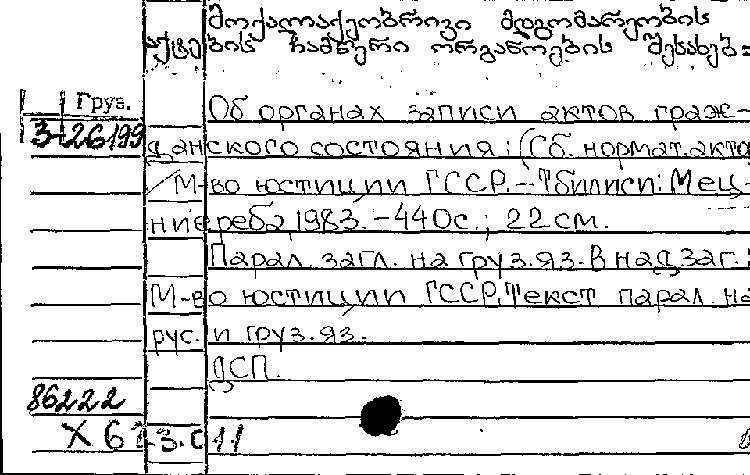 მოქალაქეობრივი მდგომარეობის
აქტების ჩამწერი ორგანოების შესახებ=
Груз.
Об органах записи актов граж-
3-26199
данского состояния: (Сб. нормат. акто
/М-во юстиции ГССР.-Тбилиси: Мец-
ниереба, 1983.-440с.; 22см.
Парал. загл. на груз. яз. В надзаг.:
М-во юстиции ГССР. Текст парал. на
рус. и груз. яз.
ДСП.
86222
X 67.3.011